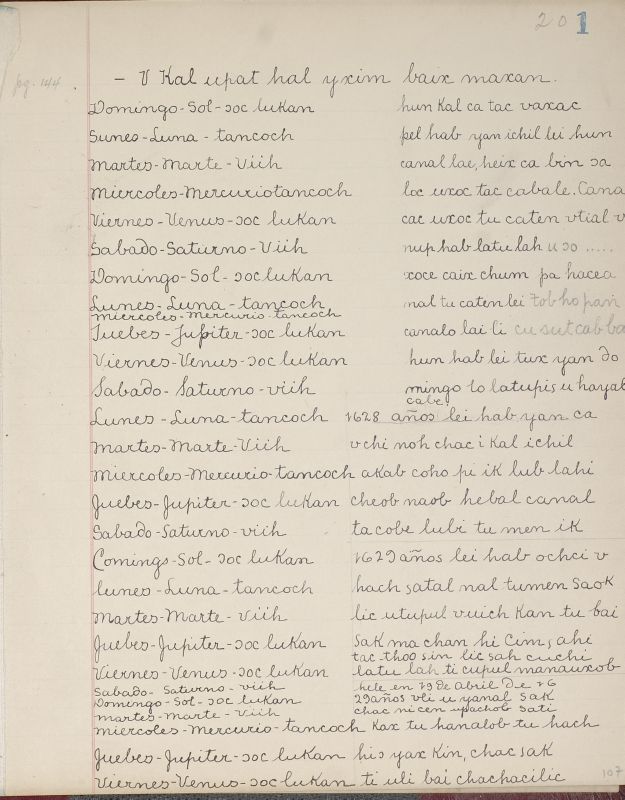 201
pg. 144
– V Kal upat hal yxim baix maxan.
Domingo-Sol-ɔoc luKan hun Kal ca tac vaxac
Sunes-Luna-tancoch pel hab yan ichil lei hun
Martes-Marte-Viih canal lae, heix ca bin ɔa
Miercoles-Mercurio tancoch loc uxoc tac cabale. Cana
Viernes-Venus-ɔoc luKan cac uxoc tu caten vtial v
Sabado-Saturno-Viih nup hab latulah u ɔo .....
Domingo-Sol-ɔoc luKan xoce caix chum pa hacea
Lunes-Luna-tancoch nal tu caten lei tob ho pan
miercoles-Mercurio-tancoch
Juebes-Jupiter-ɔoc luKan canalo lai li cu sut cab ba
Viernes-Venus-ɔoc luKan hun hab lei tux yan do
Sabado-Saturno-viih mingo lo latupis u hayal
cabe.
Lunes-Luna-tancoch 1628 años lei hab yan ca
Martes-Marte-Viih v chi noh chac i Kal ichil
Miercoles-Mercurio-tancoch aKab coho pi iK lub lahi
Juebes-Jupiter-ɔoc luKan cheob naob hebal canal
Sabado-Saturno-viih tacobe lubi tu men iK
Comings-Sol-ɔoc luKan 1629 años lei hab ochci v
lunes-Luna-tancoch hach satal nal tumen SaoK
Martes-Marte-Viih lic utupul vuich Kan tu bai
Juebes-Jupiter-ɔoc luKan SaK ma chan hi Cim, ahi
tac thoo sin lic sah cuchi
Viernes-Venus-ɔoc luKan latu lah ti cupul manauxob
Sabado-Saturno-viih hele en 19 de abril De 16
Domingo-Sol-ɔoc luKan 29 años vli u yanal SaK
martes-Marte-Viih chac nicen upachob Sati
miercoles-Mercurio-tancoch Kax tu hanalob tu hach
Juebes-Jupiter-ɔoc luKan his yax Kin, chac SaK
Viernes-Venus-ɔoc luKan ti uli bai chachacilic
107